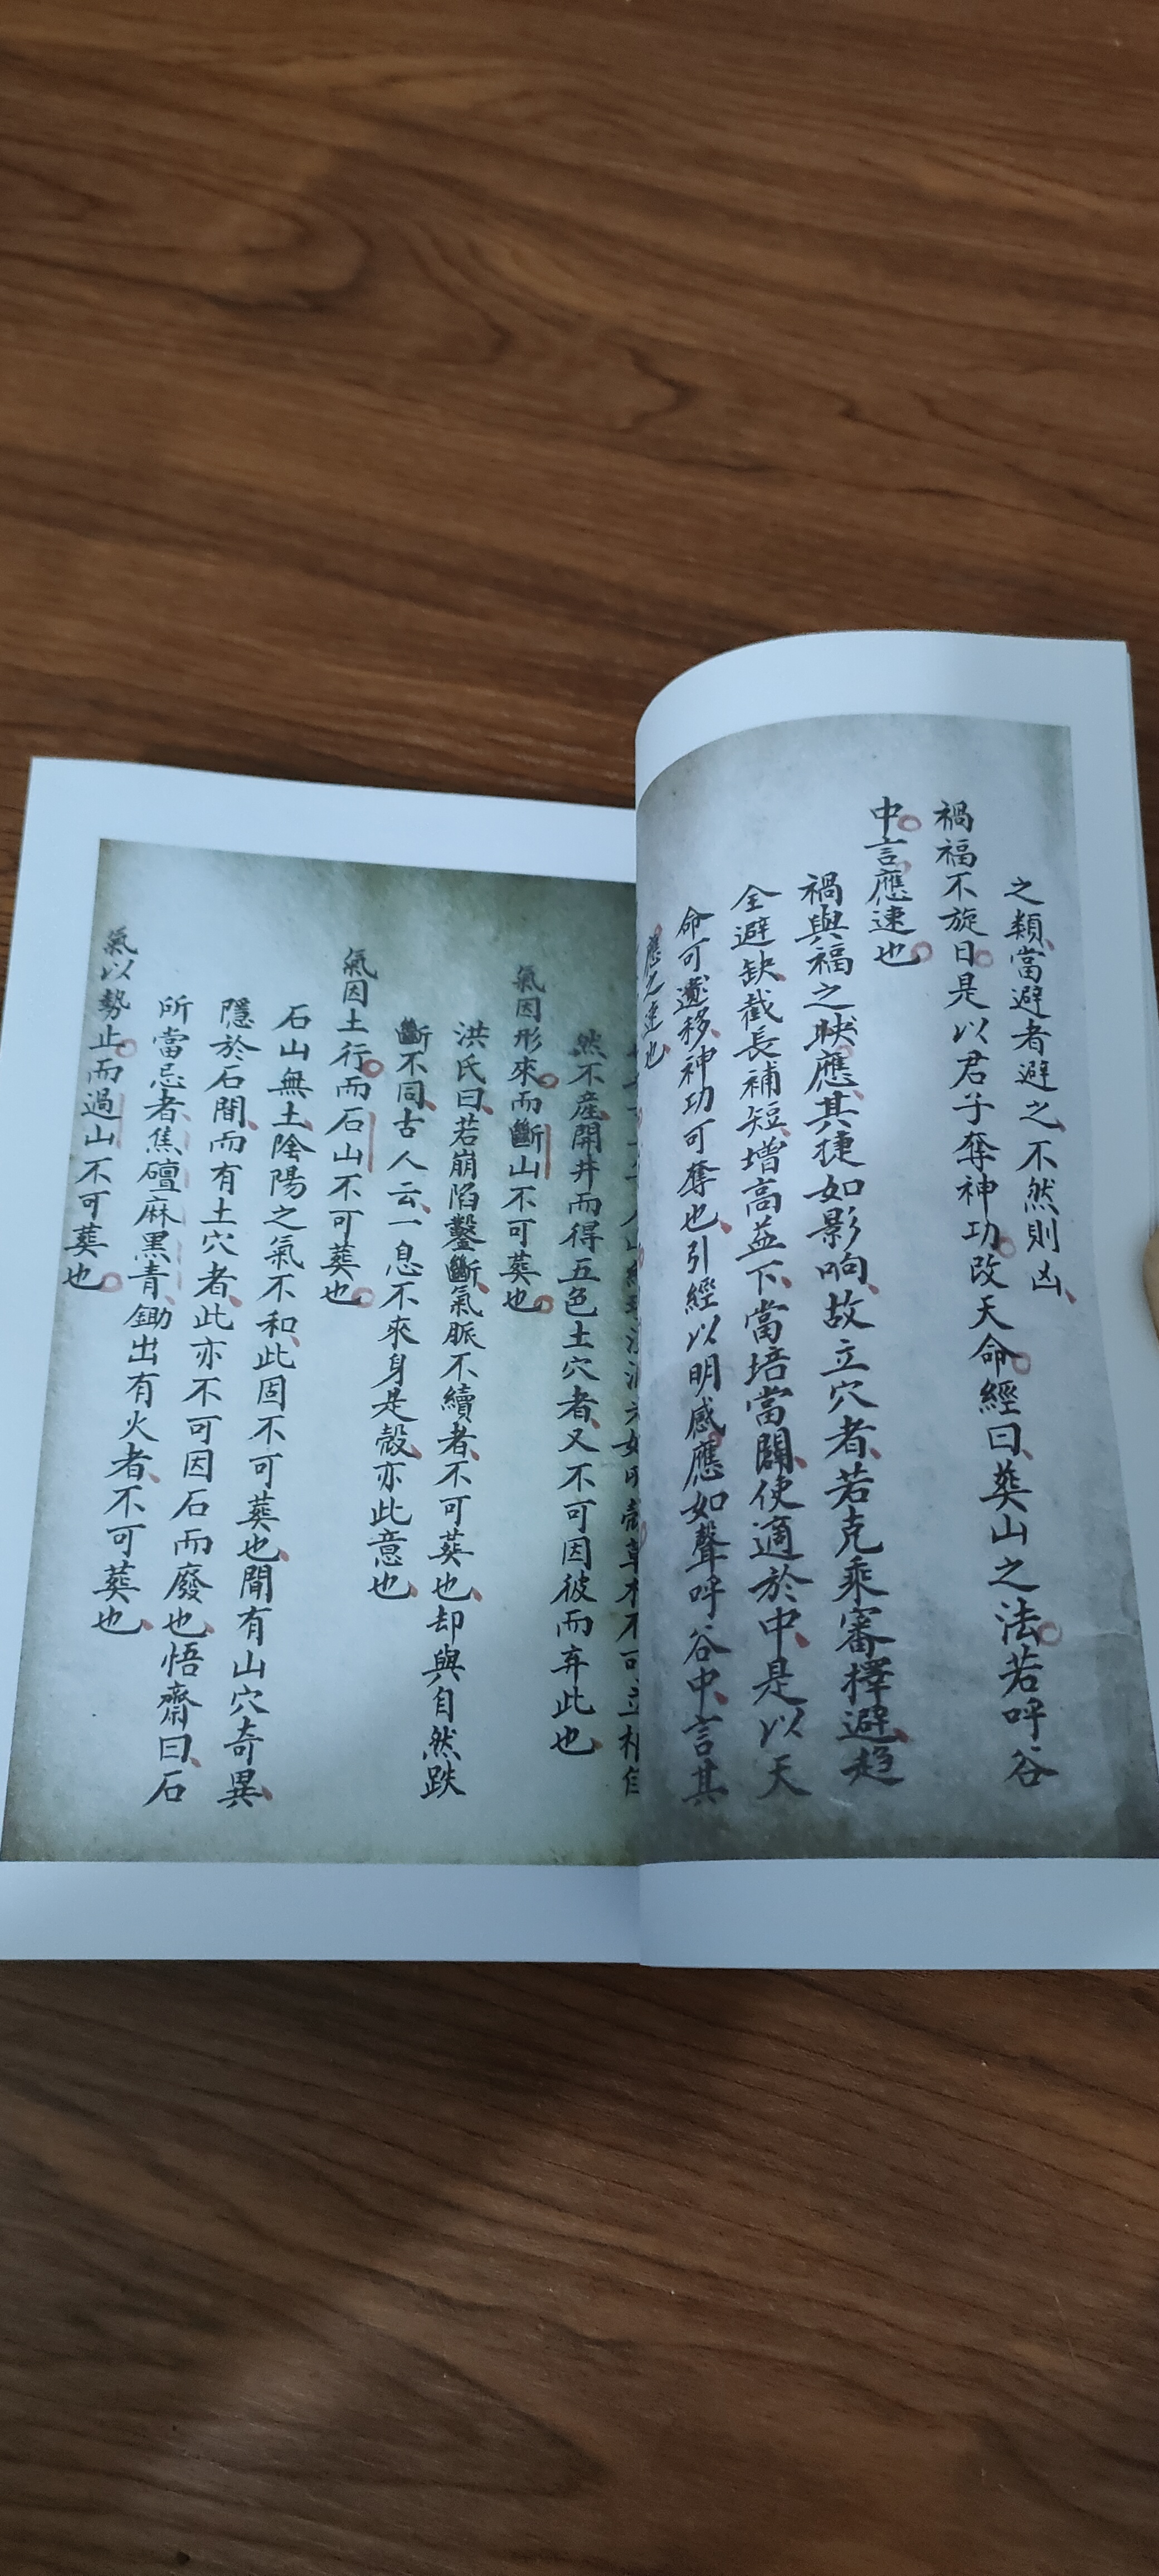 之類當避者避之不然則凶
禍福不旋日是以君子奪神功改天命經曰葬山之法若呼谷
中言應速也
禍與福之應其捷如影响故立穴者若克乘審擇避趋
全避缺截長補短增高益下當培當闢使適於中是以天
命可移神功可奪也引經以明感應如聲呼谷中言其
應之速也
然不產開井而得五色土穴者又不可因彼而弃此也
氣因形來而斷山不可葬也
洪氏曰若崩陷鑿斷氣脈不續者不可葬也却與自然跌
斷不同古人云一息不來身是殼亦此意也
氣因土行而石山不可葬也
石山無土陰陽之氣不和此固不可葬也間有山穴奇異
隱於石間而有土穴者此亦不可因石而廢也悟齋曰石
所當忌者焦礓麻黑青鋤出有火者不可葬也
氣以勢止而過山不可葬也